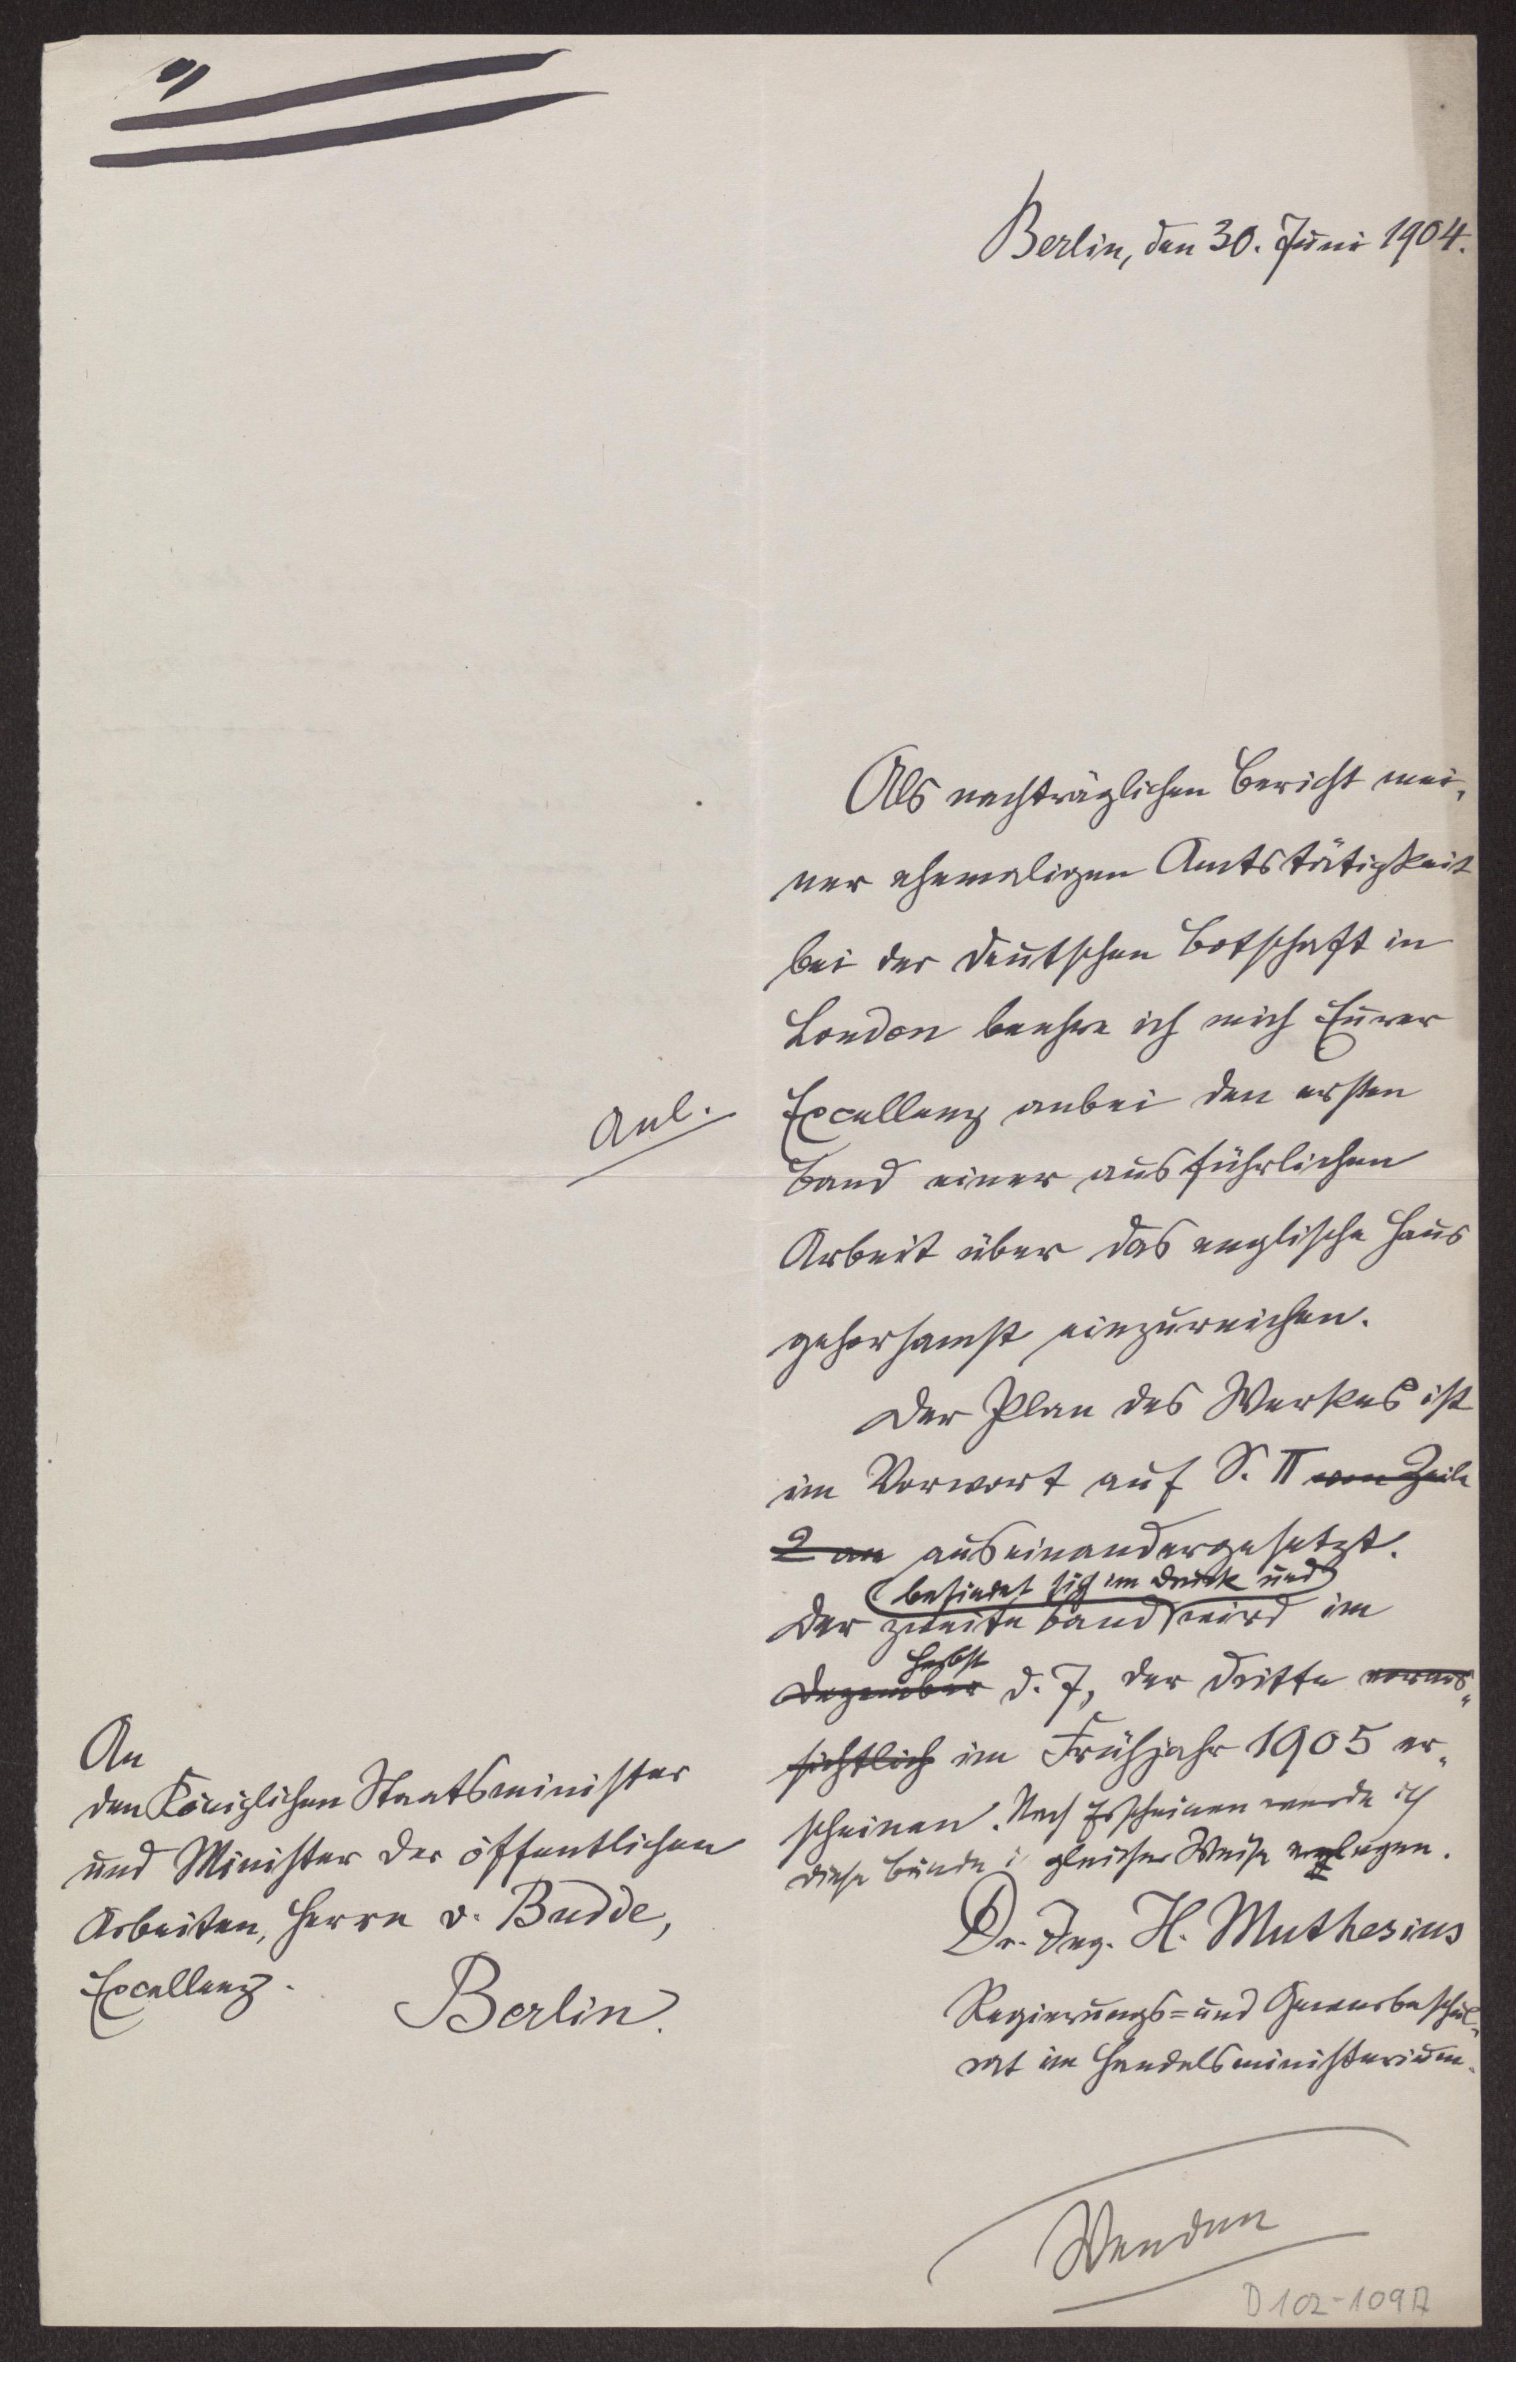 a)
Berlin, den 30. Juni 1904.
Als nachträglichen Bericht mei-
ner ehemaligen Amtstätigkeit
bei der deutschen Botschaft in
London beehre ich mich Eurer
Anl.
Excellenz anbei den ersten
Band einer ausführlichen
Arbeit über das englische Haus
gehorsamst einzureichen.
Der Plan des Werkes ist
im Vorwort auf S. II von Zeile
2 an auseinandergesetzt.
befindet sich im Druck und
Der zweite Band wird im
Herbst
Dezember d. J, der dritte voraus-
sichtlich im Frühjahr 1905 er-
scheinen. Nach Erscheinen werde ich
diese Bände i gleicher Weise vorlegen.
Dr.-Ing. H. Muthesius
Regierungs- und Gewerbeschul-
rat im Handelsministerium.
An
den Königlichen Staatsminister
und Minister der öffentlichen
Arbeiten, Herrn v. Budde,
Excellenz.
Berlin.
Wenden
D 102-109A